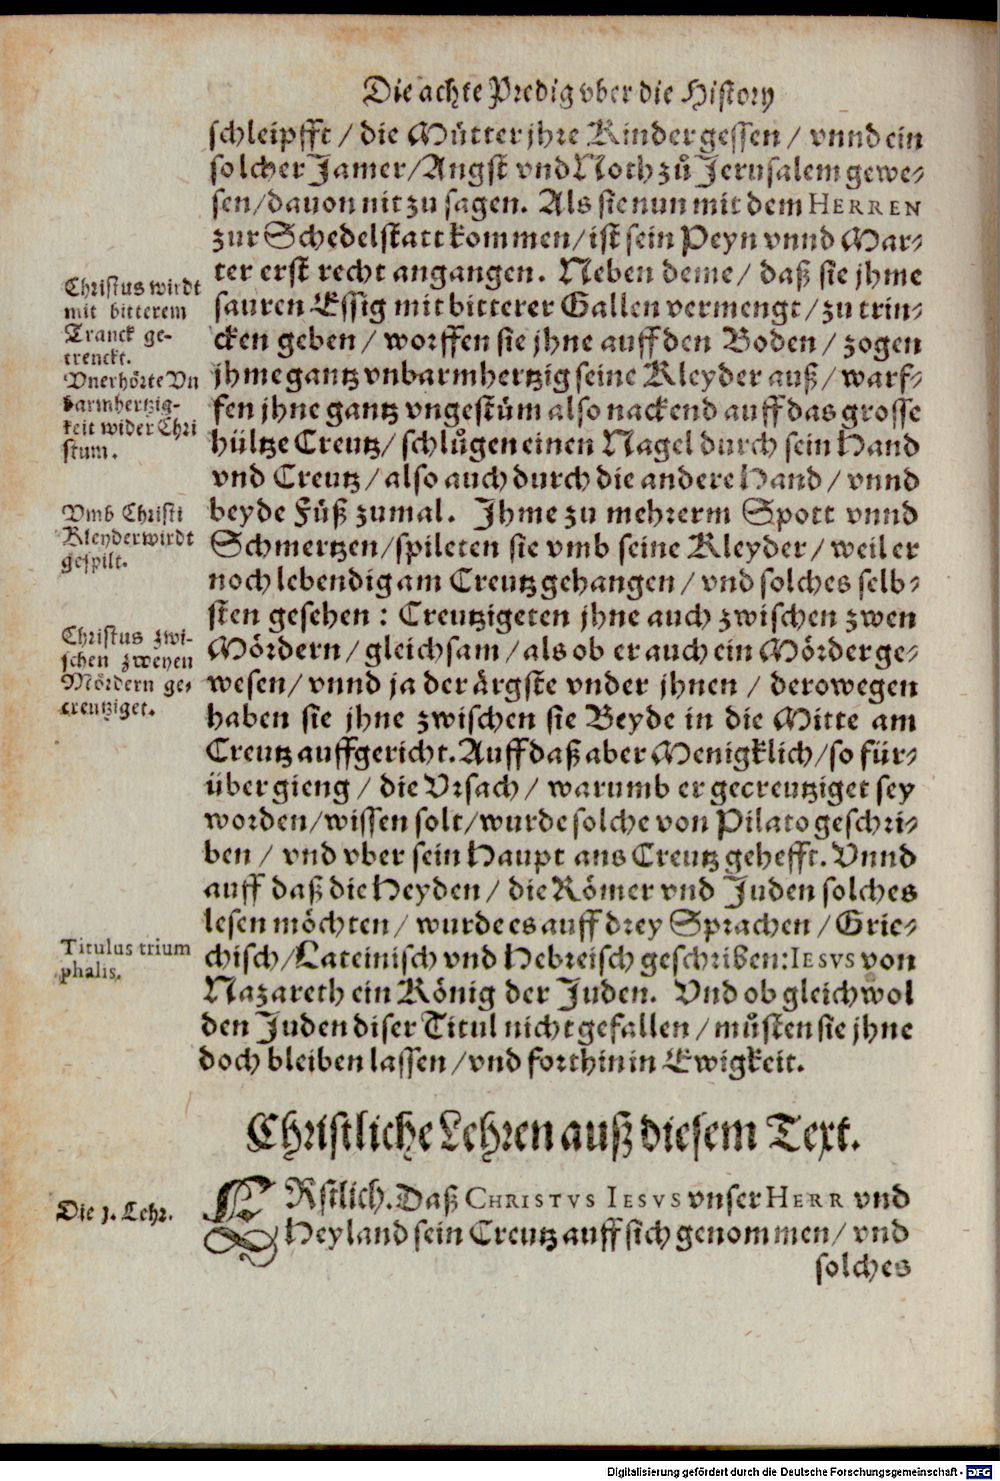 Die achte Predig vber die History
schleipfft / die Mütter jhre Kinder gessen / vnnd ein
solcher Jamer/Angst vnd Noth zů Jerusalem gewe-
sen/dauon nit zu sagen. Als sie nun mit dem HERREN
zur Schedelstatt kommen/ist sein Peyn vnnd Mar-
ter erst recht angangen. Neben deme / daß sie jhme
sauren Essig mit bitterer Gallen vermengt / zu trin-
cken geben / worffen sie jhne auff den Boden / zogen
jhme gantz vnbarmhertzig seine Kleyder auß / warf-
fen jhne gantz vngestüm also nackend auff das grosse
hültze Creutz/ schlůgen einen Nagel durch sein Hand
vnd Creutz / also auch durch die andere Hand / vnnd
beyde Füß zumal. Jhme zu mehrerm Spott vnnd
Schmertzen/spileten sie vmb seine Kleyder / weil er
noch lebendig am Creutz gehangen / vnd solches selb-
sten gesehen : Creutzigeten jhne auch zwischen zwen
Mördern / gleichsam / als ob er auch ein Mörder ge-
wesen/ vnnd ja der ärgste vnder jhnen / derowegen
haben sie jhne zwischen sie Beyde in die Mitte am
Creutz auffgericht. Auff daß aber Menigklich/so für-
über gieng / die Vrsach / warumb er gecreutziget sey
worden/wissen solt/wurde solche von Pilato geschri-
ben / vnd vber sein Haupt ans Creutz gehefft. Vnnd
auff daß die Heyden / die Römer vnd Juden solches
lesen möchten / wurde es auff drey Sprachen / Grie-
chisch/Lateinisch vnd Hebreisch geschriben: IESVS von
Nazareth ein König der Juden. Vnd ob gleichwol
den Juden diser Titul nicht gefallen / můsten sie jhne
doch bleiben lassen /vnd forthin in Ewigkeit.
Christus wirdt
mit bitterem
Tranck ge-
trenckt.
Vnerhörte Vn
barmhertzig-
keit wider Chri
stum.
Vmb Christi
Kleyder wirdt
gespilt.
Christus zwi-
schen zweyen
Mördern ge-
creutziget.
Titulus trium
phalis.
Christliche Lehren auß diesem Text.
Die 1. Lehr.
ERstlich. Daß CHRISTVS IESVS vnser HERR vnd
Heyland sein Creutz auff sich genommen / vnd
solches
Digitalisierung gefördert durch die Deutsche Forschungsgemeinschaft - DFG